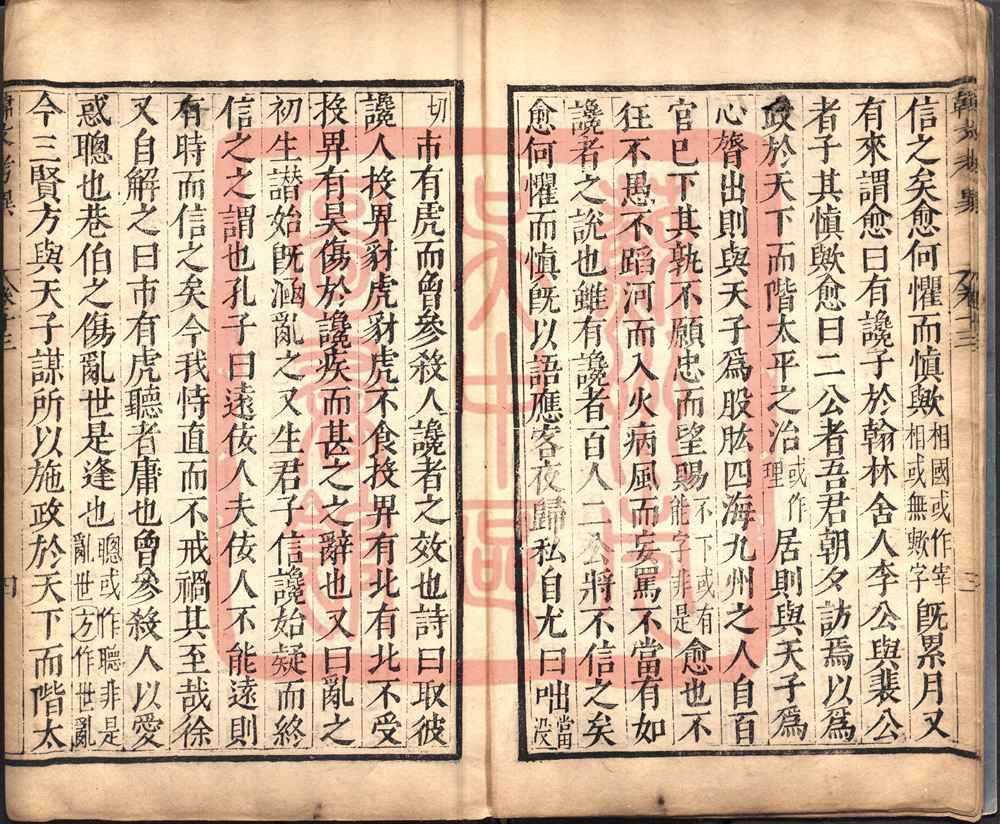 信之矣愈何懼而慎歟相國或作宰相或無歟字既累月又
有來謂愈曰有讒子於翰林舍人李公與裴公
者子其慎歟愈曰二公者吾君朝夕訪焉以爲
政於天下而階太平之治或作理居則與天子爲
心膂出則與天子爲股肱四海九州之人自百
官已下其孰不願忠而望賜不下或有能字非是愈也不
狂不愚不蹈河而入火病風而妄罵不當有如
讒者之説也雖有讒者百人二公將不信之矣
愈何懼而慎既以語應客夜歸私自尤曰咄當没
切市有虎而曾參殺人讒者之效也詩曰取彼
讒人投畀豺虎豺虎不食投畀有北有北不受
投畀有昊傷於讒疾而甚之之辭也又曰亂之
初生譖始既涵亂之又生君子信讒始疑而終
信之之謂也孔子曰遠佞人夫佞人不能遠則
有時而信之矣今我恃直而不戒禍其至哉徐
又自解之曰市有虎聽者庸也曾參殺人以愛
惑聰也巷伯之傷亂世是逢也聰或作聽非是亂世方作世亂
今三賢方與天子謀所以施政於天下而階太
四